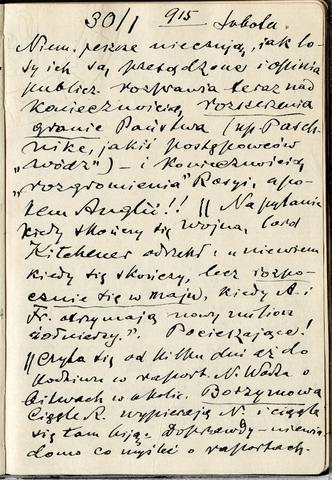 30/I 915 Sobota.
Niem. jeszcze nie czują, jak lo-
sy ich są przesądzone i opinia
publicz. rozprawia teraz nad
koniecznością rozszerzenia
granic Państwa (np. Pasch-
nike, jakiś postępowców
"wódz") – i koniecznością
"rozgromienia" Rosyi, a po-
tem Anglii!! || Na pytanie
kiedy skończy się wojna, lord
Kitchener odrzekł: "nie wiem
kiedy się skończy, lecz rozpo-
cznie się w maju, kiedy A. i
Fr. otrzymają nowy milion
żołnierzy." Pocieszające!
|| Czyta się od kilku dni aż do
podziwu w raport. N. Wodza o
bitwach w okolic. Borzymowa
Ciągle R. wypierają N. i ciągle
się tam biją. Doprawdy – niewia-
domo co myśleć o raportach.